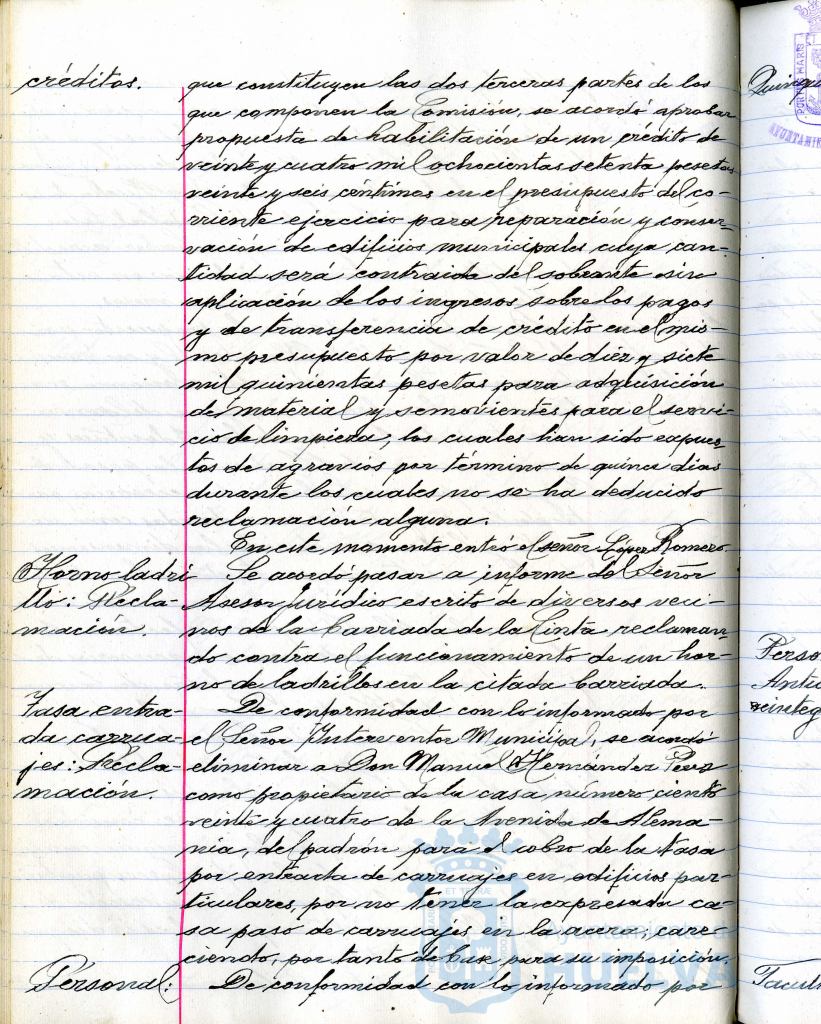 créditos.
que constituyen las dos terceras partes de los
que componen la Comisión, se acordó aprobar
propuesta de habilitación de un crédito de
veinte y cuatro mil ochocientas setenta pesetas
veinte y seis céntimos en el presupuesto del co-
rriente ejercicio para reparación y conser-
vación de edificios municipales cuya can-
tidad será contraida del sobrante sin
aplicación de los ingresos sobre los pagos
y de transferencia de crédito en el mis-
mo presupuesto por valor de diez y siete
mil quinientas pesetas para adquisición
de material y semovientes para el servi-
cio de limpieza, los cuales han sido expues-
tos de agravios por término de quince dias
durante los cuales no se ha deducido
reclamación alguna.
En este momento entró el señor López Romero.
Horno ladri
llo: Recla-
mación.
Se acordó pasar a informe del Señor
Asesor Jurídico escrito de diversos veci-
nos de la barriada de la Cinta reclaman-
do contra el funcionamiento de un hor-
no de ladrillos en la citada barriada.
Tasa entra-
da carrua-
jes: Recla-
mación.
De conformidad con lo informado por
el Señor Interventor Municipal, se acordó
eliminar a Don Manuel Hernández
como propietario de la casa número ciento
veinte y cuatro de la Avenida de Alema-
nia, del padrón para el cobro de la tasa
por entrada de carruajes en edificios par-
ticulares, por no tener la expresada ca-
sa paso de carruajes en la acera, care-
ciendo, por tanto de base para su imposición.
Personal:
De conformidad con lo informado por
Ayuntamiento d
HUELVA
Quinqu
Perso
Antic
reinteg
Facult